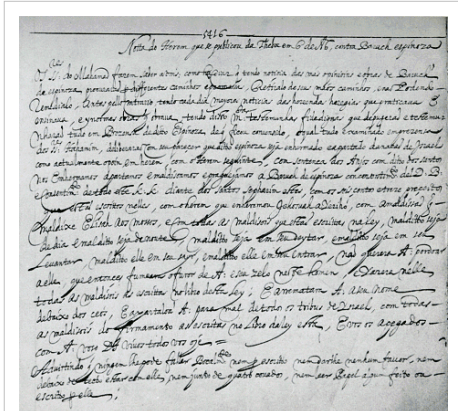 1416
Nota do Herem que se publicou da Theba em 6 de Ab, contra Baruch espinoza
Os SSres do Mahamad fazem saber a Vms, como ha dias que tendo noticia das mas opinioins e obras de Baruch
de espinoza, procurarão por differentes caminhos e promessas Retiralo de seus maos caminhos, e não Podendo
Remedialo, Antes pelo contrario tendo cada dia mayores noticias das horrendas heregias que praticava E
ensinava, e ynormes obras que obrava, tendo disto mtas testemunhas fidedignas que depuzerão e testemunharão
tudo em Prezensa do dito Espinoza, de q ficou convensido, o qual tudo examinado em prezensa
dos SSres Hahamim, deliberarão com seu parecer que o dito espinoza seja enhermado e apartado da nação de Israel
como actualmente o poin em herem, com o Herem seguinte, Com sentença dos Anjos com dito dos santos
nos Enhermamos apartamos e maldisoamos e praguejamos a Baruch de espinoza com consentimto del D. B.
e Consentimto de todo este K. K. diante dos santos Sepharim estes,
que estão escritos nelles, com o herem que enheremou Jehosuah a Yeriho, com a maldisão q
maldixe Elisah aos mosos, e com todas as maldisois que estão escritas na Ley, maldito seja
de dia e maldito seja de noute, maldito seja em seu deytar, e maldito seja em seu
Levantar, maldito elle em seu sayr, e maldito elle em seu entrar, não queira A. perdoar
a elle, que entonces fumeara o furor de A. e seu zelo neste homem, E yazera nelle
todas as maldisois as escritas no libro desta Ley; E arrematara A. a seu nome
debaixo dos ceos, E apartaloa A. para mal de todos os tribus de Israel, com todas
as maldisois do firmamento as escritas no libro da ley esta, E vos os apegados
com A. vosso D. vivos todos vos oje
Advirtindo q ningem lhe pode falar bocalmte nem p escrito nem darlhe nenhum favor, nem
debaixo de tecto estar com elle, nem junto de quatro covados, nem leer Papel algum feito ou
escrito p elle;